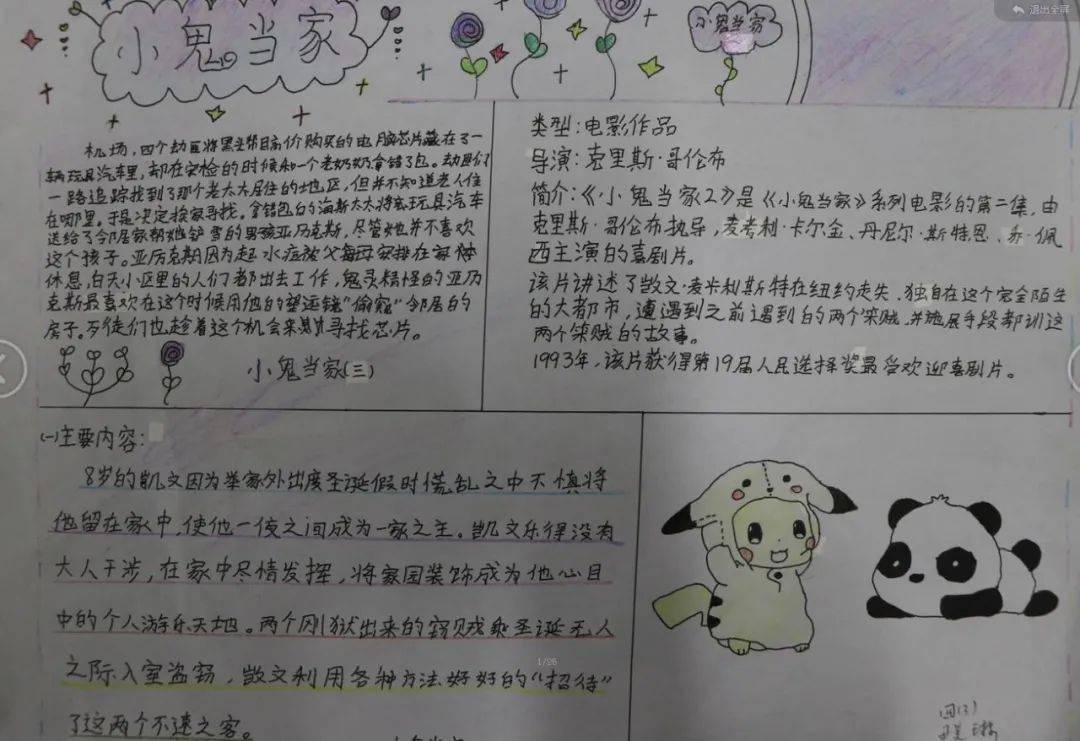 退出全屏
小鬼当家
小鬼当家
机场，四个劫匪将黑帮高价购买的电脑芯片藏在了一
辆玩具汽车里，却在安检的时候和一个老奶奶拿错了包。劫匪们
一路追踪找到了那个老太太居住的地区，但并不知道老人住
在哪里。于是决定挨家寻找。拿错包的海斯太太将玩具汽车
送给了邻居家帮她铲雪的男孩亚历克斯，尽管她并不喜欢
这个孩子。亚历克斯因为起水痘被父母安排在家休
休息，白天小区里的人们都出去工作，鬼灵精怪的亚历
克斯最喜欢在这个时候用他的望远镜“偷窥”邻居的
房子。歹徒们也趁着这个机会来寻找芯片。
小鬼当家(三)
类型：电影作品
导演：克里斯·哥伦布
简介：《小鬼当家2》是《小鬼当家》系列电影的第二集，由
克里斯·哥伦布执导，麦考利·卡尔金、丹尼尔·斯特恩、乔·佩
西主演的喜剧片。
该片讲述了凯文·麦卡利斯特在纽约走失，独自在这个完全陌生
的大都市，遭遇到之前遇到的两个笨贼，并施展手段教训这
两个笨贼的故事。
1993年，该片获得第19届人民选择奖最受欢迎喜剧片。
(一)主要内容：
8岁的凯文因为举家外出度圣诞假时慌乱之中不慎将
他留在家中，使他一夜之间成为一家之主。凯文乐得没有
大人干涉，在家中尽情发挥，将家园装饰成为他心目
中的个人游乐天地。两个刚狱出来的窃贼乘圣诞无人
之际入室盗窃，凯文利用各种方法好好的“招待”
了这两个不速之客。
1/26
四(3)